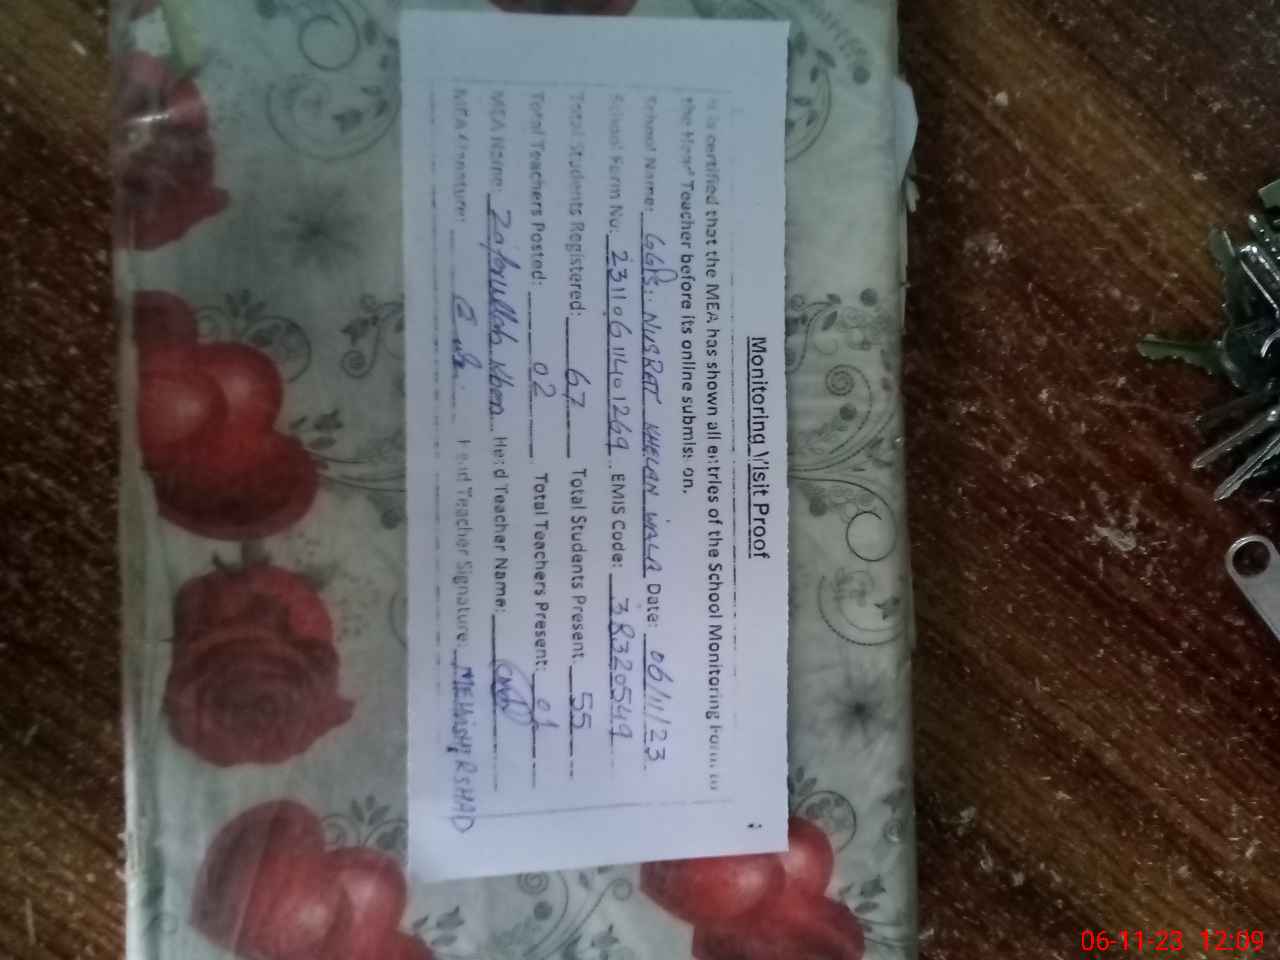 Monitoring Visit Proof
It is certified that the MEA has shown all entries of the School Monitoring Form to
the Head Teacher before its online submission.
School Name: GGPS. NUSRAT KHELAN WALA Date: 06/11/23
School Form No: 2311061140 1269 EMIS Code: 38320549
Total Students Registered: 67 Total Students Present 55
Total Teachers Posted: 02 Total Teachers Present: 01
MEA Name: Zafarullah Khan Head Teacher Name:
MEA Signature: Head Teacher Signature: MEHWISH IRSHAD
06-11-23 12:09